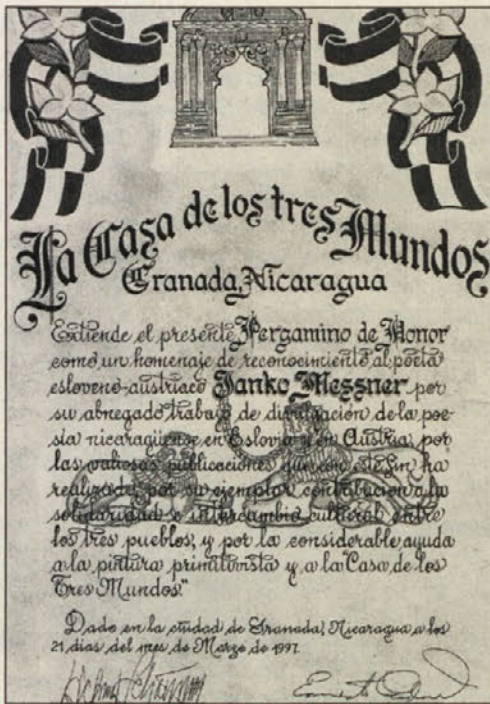 La Casa de los tres Mundos
Granada, Nicaragua
Extiende el presente Pergamino de Honor
como un homenaje de reconocimiento al poeta
esloveno-austriaco Janko Messner por
su abnegado trabajo de divulgación de la poe-
sía nicaragüense en Eslovia y en Austria, por
las valiosas publicaciones que con este fin ha
realizado, por su ejemplar contribución a la
solidaridad e intercambio cultural entre
los tres pueblos, y por la considerable ayuda
a la pintura primitivista y a la "Casa de los
Tres Mundos."
Dado en la ciudad de Granada, Nicaragua a los
21 días del mes de Marzo de 1997.